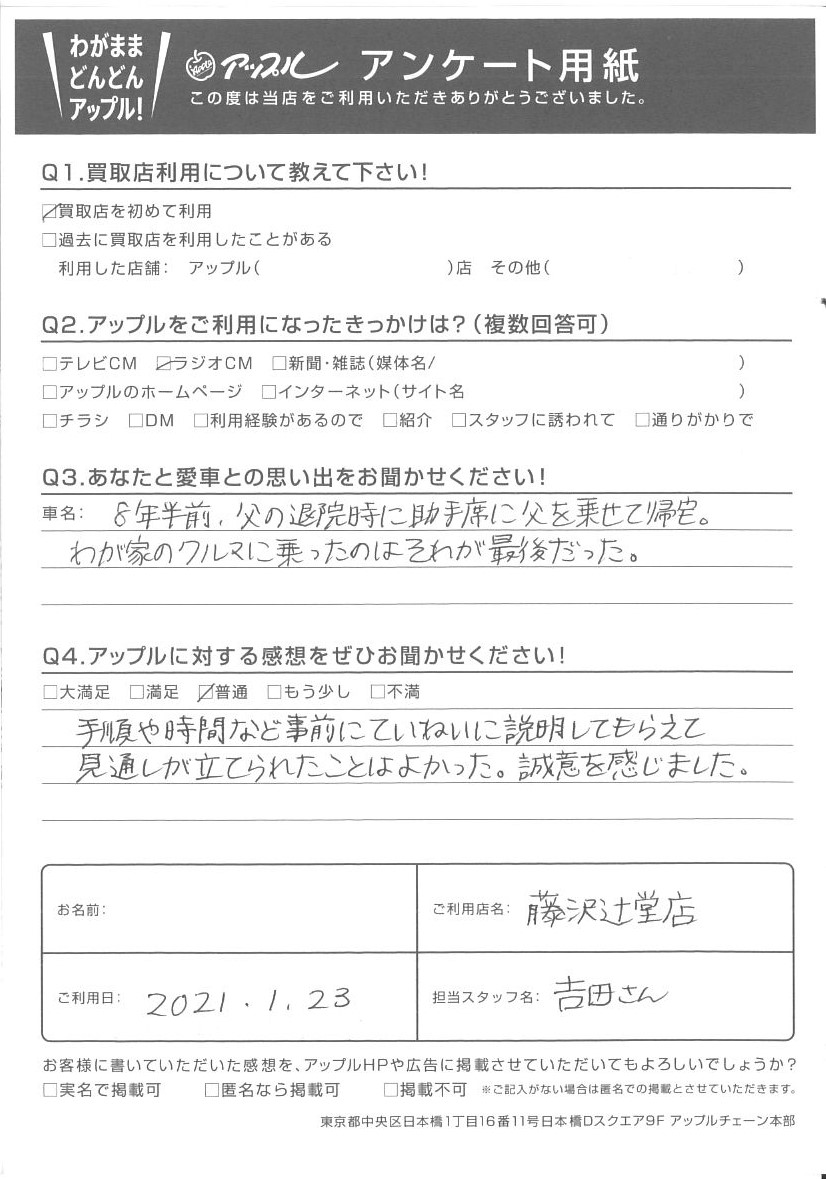 わがまま
どんどん
アップル!
Apple アップル アンケート用紙
この度は当店をご利用いただきありがとうございました。
Q1.買取店利用について教えて下さい!
☑買取店を初めて利用
□過去に買取店を利用したことがある
利用した店舗: アップル( )店 その他( )
Q2.アップルをご利用になったきっかけは?(複数回答可)
□テレビCM ☑ラジオCM □新聞・雑誌(媒体名/ )
□アップルのホームページ □インターネット(サイト名 )
□チラシ □DM □利用経験があるので □紹介 □スタッフに誘われて □通りがかりで
Q3.あなたと愛車との思い出をお聞かせください!
車名: 8年半前、父の退院時に助手席に父を乗せて帰宅。
わが家のクルマに乗ったのはそれが最後だった。
Q4.アップルに対する感想をぜひお聞かせください!
□大満足 □満足 ☑普通 □もう少し □不満
手順や時間など事前にていねいに説明してもらえて
見通しが立てられたことはよかった。誠意を感じました。
お名前:
ご利用店名: 藤沢辻堂店
ご利用日: 2021.1.23
担当スタッフ名: 吉田さん
お客様に書いていただいた感想を、アップルHPや広告に掲載させていただいてもよろしいでしょうか?
□実名で掲載可 □匿名なら掲載可 □掲載不可 ※ご記入がない場合は匿名での掲載とさせていただきます。
東京都中央区日本橋1丁目16番11号日本橋Dスクエア9F アップルチェーン本部